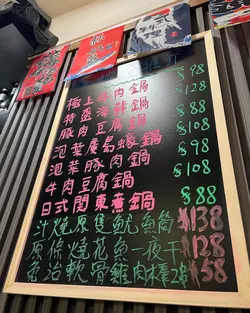 日式
料理
極上牛肉鍋 $98
特選海鮮鍋 $128
豚肉豆腐鍋 $88
泡菜廣島蠔鍋 $108
泡菜豚肉鍋 $98
牛肉豆腐鍋 $108
日式関東煮鍋 $88
汁燒原隻魷魚筒 $138
原條燒花魚一夜干 $128
免治軟骨雞肉棒2串 $58